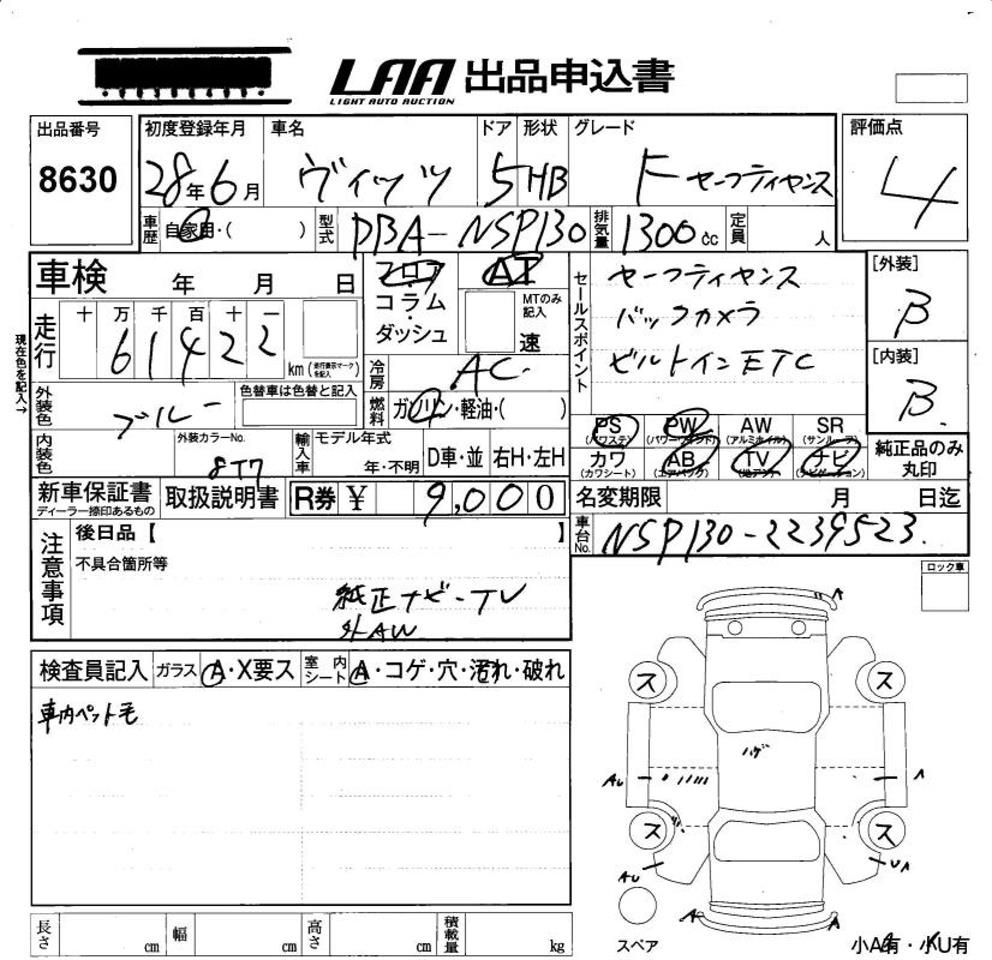 LAA 出品申込書
LIGHT AUTO AUCTION
出品番号
8630
初度登録年月
28年6月
車名
ヴィッツ
ドア
5
形状
HB
グレード
F セーフティセンス
評価点
4
車歴
自家用・( )
型式
DBA-NSP130
排気量
1300cc
定員
人
車検 年 月 日
フロア
コラム
・
ダッシュ
AT
MTのみ記入
速
セールスポイント
セーフティセンス
バックカメラ
ビルトインETC
[外装]
B
[内装]
B
現在色を記入→
走行
十 万 千 百 十 一
61422
km (走行表示マークを記入)
冷房
AC
燃料
ガソリン・軽油・( )
外装色
ブルー
色替車は色替と記入
内装色
外装カラーNo.
8T7
輸入車
モデル年式
年・不明
D車・並
右H・左H
PS (パワステ)
PW (パワーウインド)
AW (アルミホイル)
SR (サンルーフ)
カワ (カワシート)
AB (エアバッグ)
TV (地アナ)
ナビ (ナビゲーション)
純正品のみ丸印
新車保証書
ディーラー捺印あるもの
取扱説明書
R券 ¥ 9,000
名変期限 月 日迄
車台No.
NSP130-2239523
注意事項
後日品【 】
不具合箇所等
純正ナビ-TV
外AW
ロック車
検査員記入
ガラス
A・X要ス
室内シート
A・コゲ・穴・汚れ・破れ
車内ペット毛
A
ス
ス
ハゲ
AU
A
ス
ス
AU
UA
A
A
スペア
小A有・小U有
長さ cm
幅 cm
高さ cm
積載量 kg